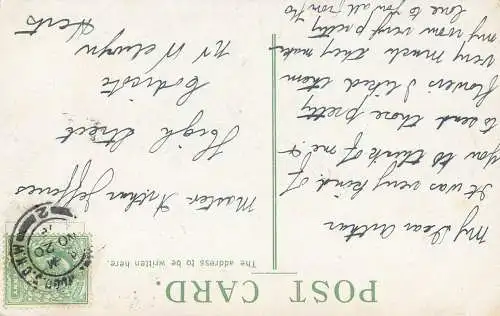 POST CARD.
The address to be written here.
My Dear Arthur
It was very kind of
you to think of me &
to send those pretty
flowers I liked them
very much they make
my room very pretty
love to you all from Flo
Master Arthur Jeffries
High Street
Codicote
Nr Welwyn
Herts
NO 20
2